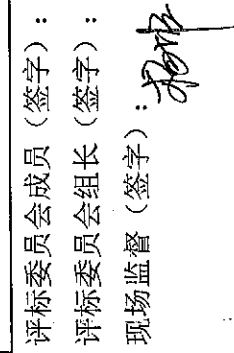 评标委员会成员（签字）：
评标委员会组长（签字）：
现场监督（签字）：